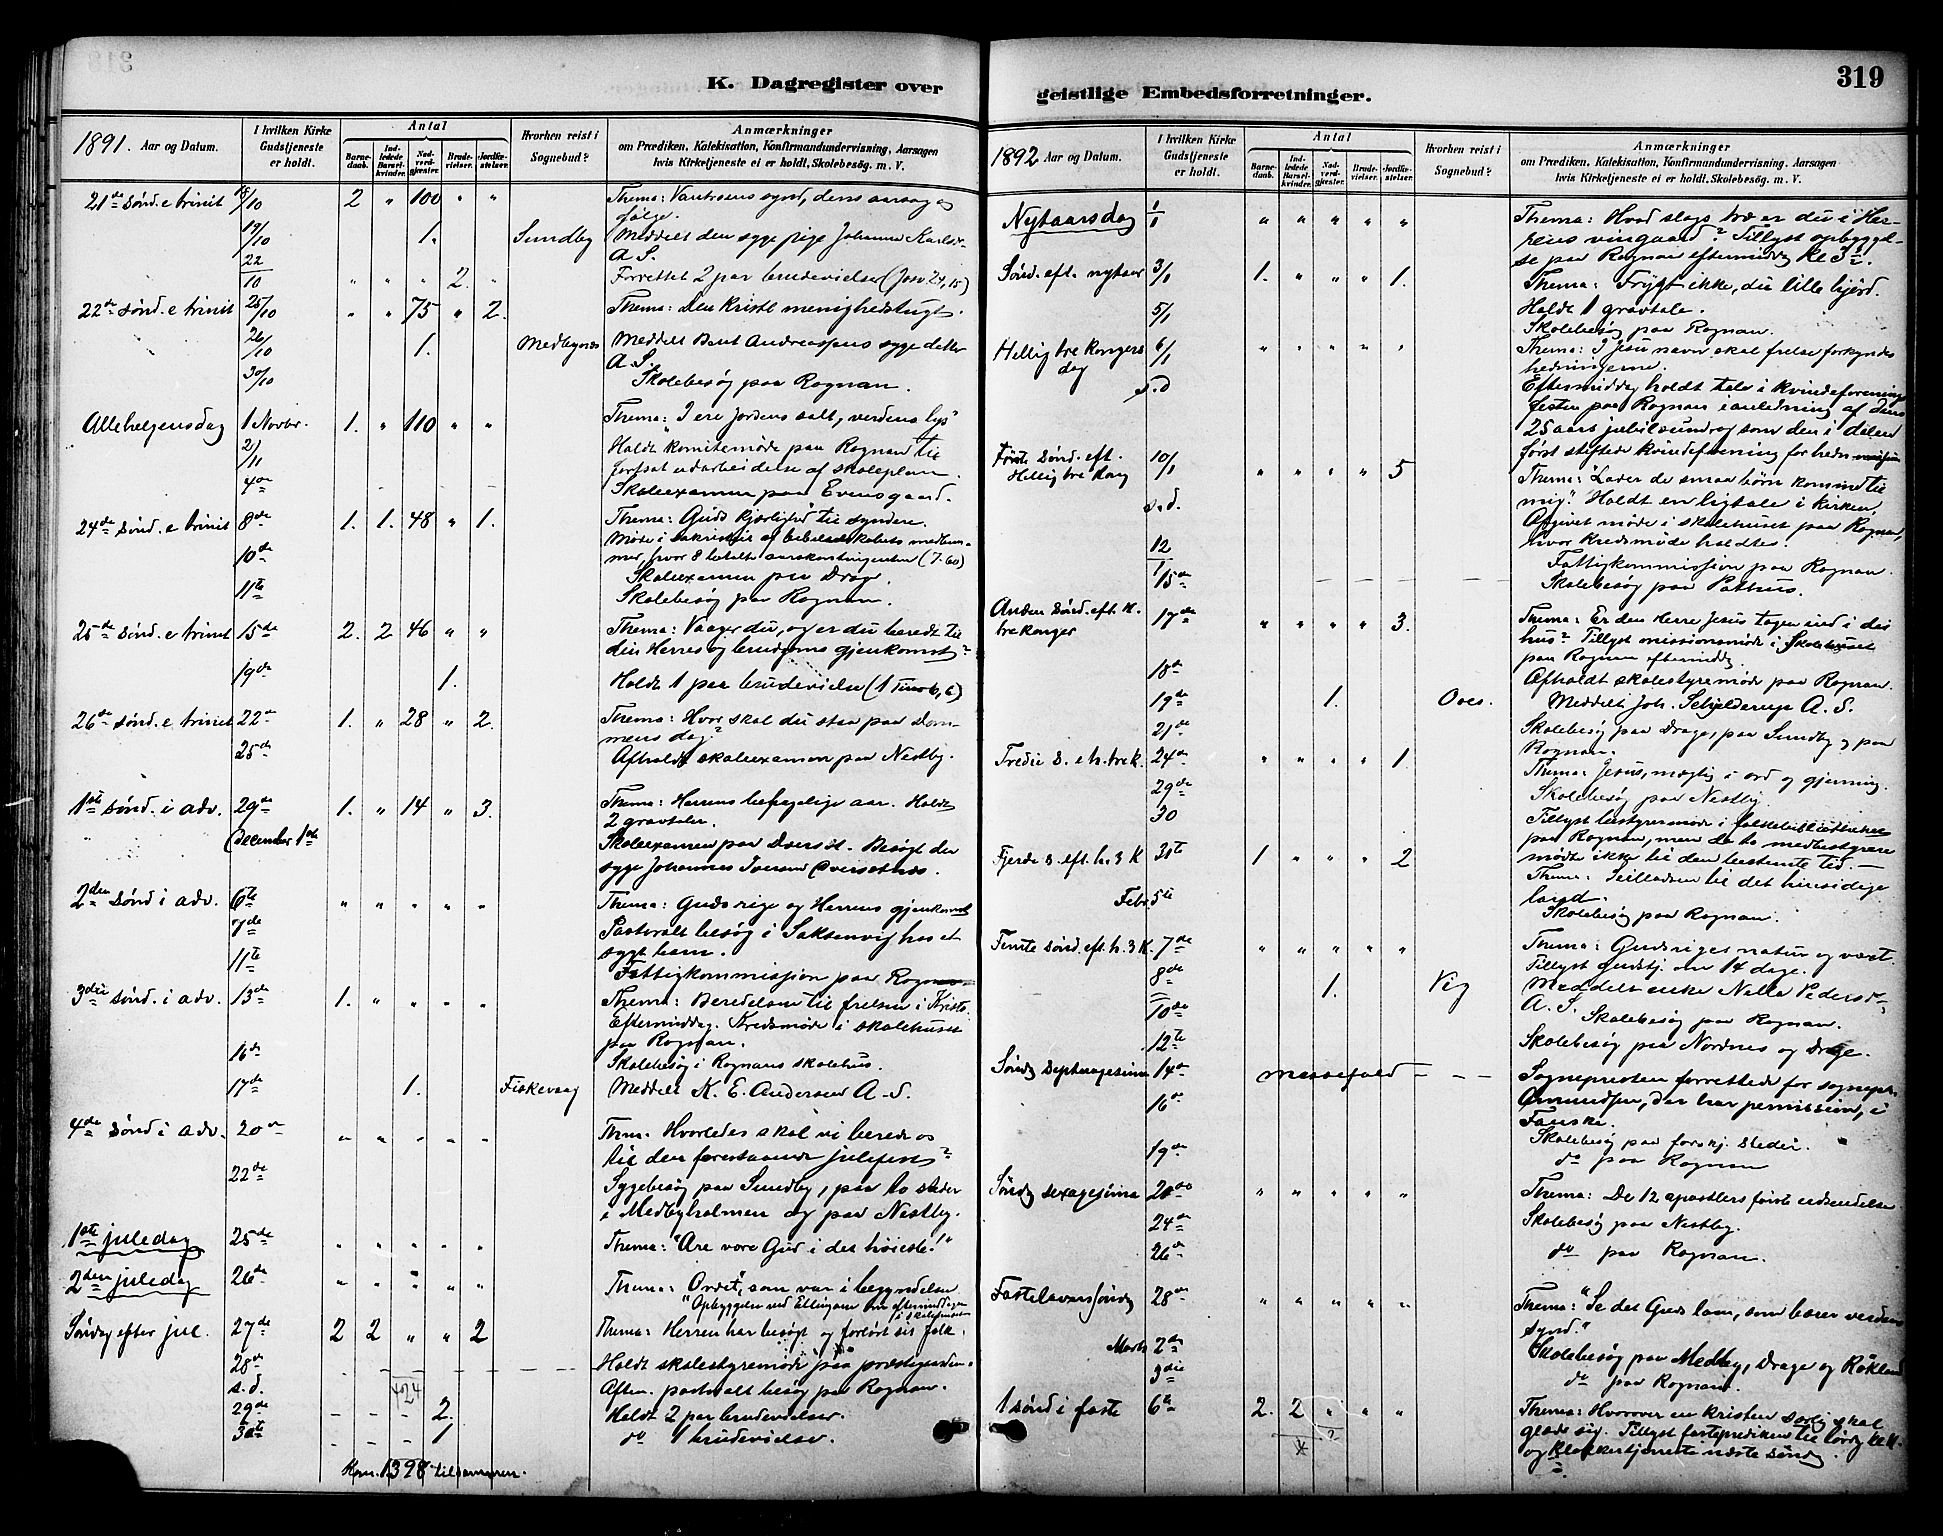 K. Dagregister over
1891. Aar og Datum.
I hvilken Kirke Gudstjeneste er holdt.
Antal
Barnedaab.
Indledede Barselkvinder.
Nadverdgjester.
Brudevielser.
Jordfæstelser.
Hvorhen reist i Sognebud?
Anmærkninger
om Prædiken, Katekisation, Konfirmandundervisning, Aarsagen
hvis Kirketjeneste ei er holdt, Skolebesøg. m. V.
21de sønd. e trinit 18/10 2 " 100 " " Thema: Vantroens synd, dens aarsag og
følge.
19/10 1. Sundby Meddelt den syge pige Johanna Karlsd.
A S.
22/10 " " " 2. " Forrettet 2 par brudevielse (Josv 24, 15)
22de sønd. e trinit 25/10 " " 75 " 2. Thema: Den kristl menighedstugt.
26/10 1. Medbynes Meddelt Bent Andreassens syge datter
A S.
30/10 Skolebesøg paa Rognan.
Allehelgensdag 1 Novbr. 1. " 110 " " Thema: I ere jordens salt, verdens lys"
2/11 Holdt komitemøde paa Rognan til
fortsat udarbeidelse af skoleplan.
4de Skoleexamen paa Evensgaard.
24de sønd. e trinit 8de 1. 1. 48 " 1. Thema: Guds kjærlighed til syndere.
Møde i sakristiet af bibelselskabets medlem-
mer, hvor 8 betalte aarskontingenten (7.60)
10de Skoleexamen paa Drage.
11te Skolebesøg paa Rognan.
25de sønd. e trinit 15de 2. 2 46 " " Thema: Vaager du, og er du beredt til
din Herres og brudgoms gjenkomst?
19de 1. Holdt 1 par brudevielse (1 Timoth 6, 6)
26de sønd. e trinit 22de 1. " 28 " 2. Thema: Hvor skal du staa paa dom-
mens dag?
25de Afholdt skoleexamen paa Nestby.
1ste sønd. i adv. 29de 1. " 14 " 3. Thema: Herrens behagelige aar. Holdt
2 gravtaler.
(december 1ste Skoleexamen paa . Besøgt den
syge Johannes Iversen .
2den sønd i adv. 6te " " " " " Thema: Guds rige og Herrens gjenkomst
7de Pastoralt besøg i Saksenvig hos et
sygt barn.
11te Fattigkommission paa Rognan
3die sønd. i adv. 13de 1. " " " " Thema: Beredelsen til frelsen i Kristo.
Eftermiddag. Kredsmøde i skolehuset
paa Rognan.
16de Skolebesøg i Rognans skolehus.
17de 1. Fiskevaag Meddelt K. E. Andersen A. S.
4de sønd i adv. 20de " " " " " Thema. Hvorledes skal vi berede os
til den forestaaende julefest?
22de Sygebesøg paa Sundby, paa to steder
i Medbyholmen og paa Nestby.
1ste juledag 25de " " " " " Thema: "Ære være Gud i det høieste!"
2den juledag 26de " " " " " Thema: Ordet, som var i begyndelsen
"Opbyggelse ved Ellingsen om eftermiddagen
i skolehuset
Søndag efter jul. 27de 2 2 " " 2 Thema: Herren har besøgt og forløst sit folk.
28de Holdt skolestyremøde paa præstegaarden.
s. d. 424 Aften. pastoralt besøg paa Rognan.
29de - - - 2. Holdt 2 par brudevielser.
30te - - - 1 do 1 brudevielser.
Kom. 1398 tilsammen.
geistlige Embedsforretninger.
319
1892 Aar og Datum.
I hvilken Kirke Gudstjeneste er holdt.
Antal
Barnedaab.
Indledede Barselkvinder.
Nadverdgjester.
Brudevielser.
Jordfæstelser.
Hvorhen reist i Sognebud?
Anmærkninger
om Prædiken, Katekisation, Konfirmandundervisning, Aarsagen
hvis Kirketjeneste ei er holdt, Skolebesøg. m. V.
Nytaarsdag 1/1 " " " " " Thema: Hvad slags træ er du i Her-
rens vingaard? Tillyst opbyggel-
se paa Rognan eftermiddag kl 3½.
Sønd. eft. nytaar 3/1 1. " " " 1. Thema: Frygt ikke, du lille hjord.
Holdt 1 gravtale.
5/1 Skolebesøg paa Rognan.
Hellig tre kongers
dag 6/1 " " " " " Thema: I Jesu navn skal frelse forkyndes
hedningerne.
s. d Eftermiddag holdt tale i kvindeforenings
festen paa Rognan i anledning af dens
25 aars jubilæum og som den i dalen
først stiftede kvindeforening for hedn
Første sønd. eft.
Hellig tre kong 10/1 " " " " 5 Thema: "Lader de smaa børn komme til
mig." Holdt en ligtale i kirken.
s. d. Afgivet møde i skolehuset paa Rognan,
hvor kredsmøde holdtes.
12/1 Fattigkommission paa Rognan.
15de Skolebesøg paa Pothus.
Anden sønd. eft. h.
tre konger 17de " " " " 3. Thema: Er den Herre Jesus tagen ind i dit
hus? Tillyst missionsmøde i Skolehuset
paa Rognan eftermiddag.
18de Afholdt skolestyremøde paa Rognan.
19de 1. Oves. Meddelt Joh. Schjelderup A. S.
21de Skolebesøg paa Drage, paa Sundby og paa
Rognan.
Tredie s. e h. tre k. 24de " " " " 1. Thema: Jesus, mægtig i ord og gjerning.
29de Skolebesøg paa Nestby.
30 Tillyst bestyrermøde i folkebibliotheket
paa Rognan, men de to medbestyrere
mødte ikke til den bestemte tid.
Fjerde s. eft. h. 3 K 31te 1 " " " 2 Thema: Seilladsen til det hinsidige
land.
Febr 5te Skolebesøg paa Rognan.
Femte sønd. eft. h. 3 K. 7de " " " " " Thema: Gudsriges natur og vext.
Tillyst gudstj. om 14 dage.
8de 1. Vig Meddelt enke Nella Pedersd.
A. S.
10de Skolebesøg paa Rognan.
12te Skolebesøg paa Nordnes og Drage.
Søndag Septuagesima 14de messefald - - - Sognepresten forrettede for sognepr.
Ømundsen, der har permission, i
Fauske.
16de Skolebesøg paa forskj. steder.
19de do paa Rognan
Søndag sexagesima 21de " " " " " Thema: De 12 apostlers første udsendelse
24de Skolebesøg paa Nestby.
26de do paa Rognan.
Fastelavenssøndag 28de " " " " " Thema: "Se det Guds lam, som bærer verdens
synd."
Marts 2de Skolebesøg paa Medby, Drage og Røkland
3die do paa Rognan.
1 sønd i faste 6te 2. 2 " " " Thema: Hvorover en kristen særlig skal
glæde sig. Tillyst fasteprediken til lørdag kl 11.
og klokkertjeneste næste søndag.